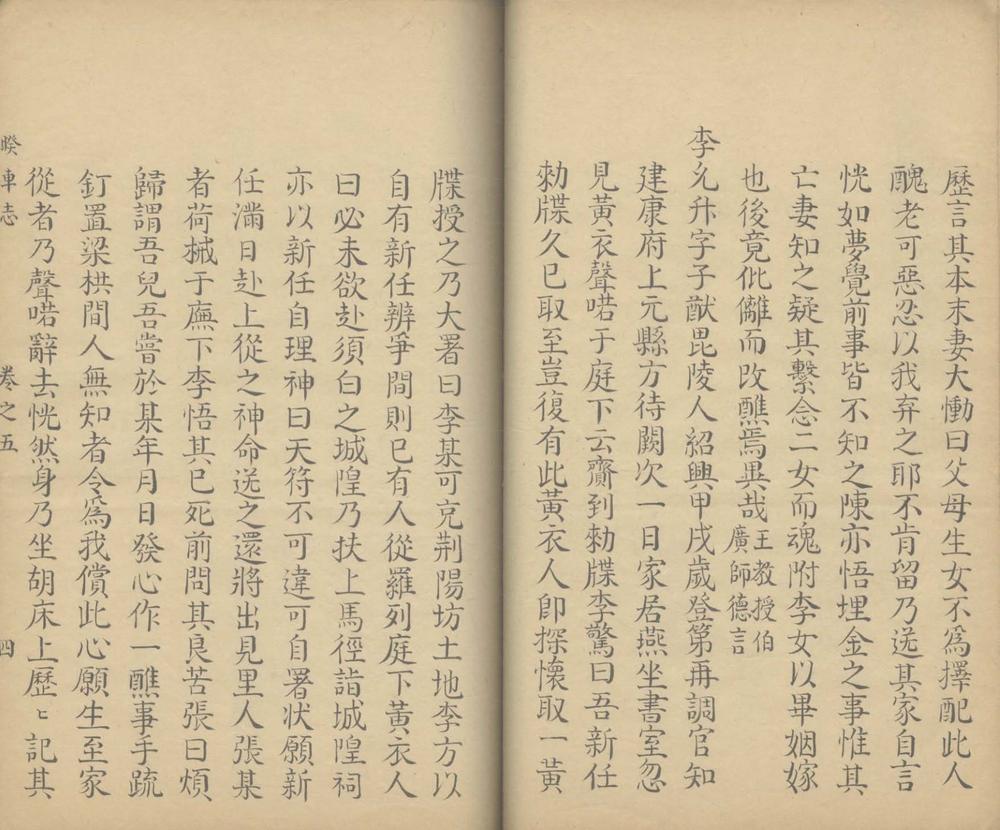 歷言其本末妻大慟曰父母生女不爲擇配此人
醜老可惡忍以我弃之耶不肯留乃送其家自言
恍如夢覺前事皆不知之陳亦悟埋金之事惟其
亡妻知之疑其繫念二女而魂附李女以畢姻嫁
也後竟仳離而改醮焉異哉王教授伯廣師德言
李允升字子猷毘陵人紹興甲戌歲登第再調官知
建康府上元縣方待闕次一日家居燕坐書室忽
見黃衣聲喏于庭下云齎到勑牒李驚曰吾新任
勑牒久已取至豈復有此黃衣人卽探懷取一黃
牒授之乃大署曰李某可充荆陽坊土地李方以
自有新任辨爭間則已有人從羅列庭下黃衣人
曰必未欲赴須白之城隍乃扶上馬徑詣城隍祠
亦以新任自理神曰天符不可違可自署狀願新
任滿日赴上從之神命送之還將出見里人張某
者荷械于廡下李悟其已死前問其良苦張曰煩
歸謂吾兒吾嘗於某年月日發心作一醮事手疏
釘置梁栱間人無知者令爲我償此心願生至家
從者乃聲喏辭去恍然身乃坐胡床上歷〻記其
睽車志 卷之五 四